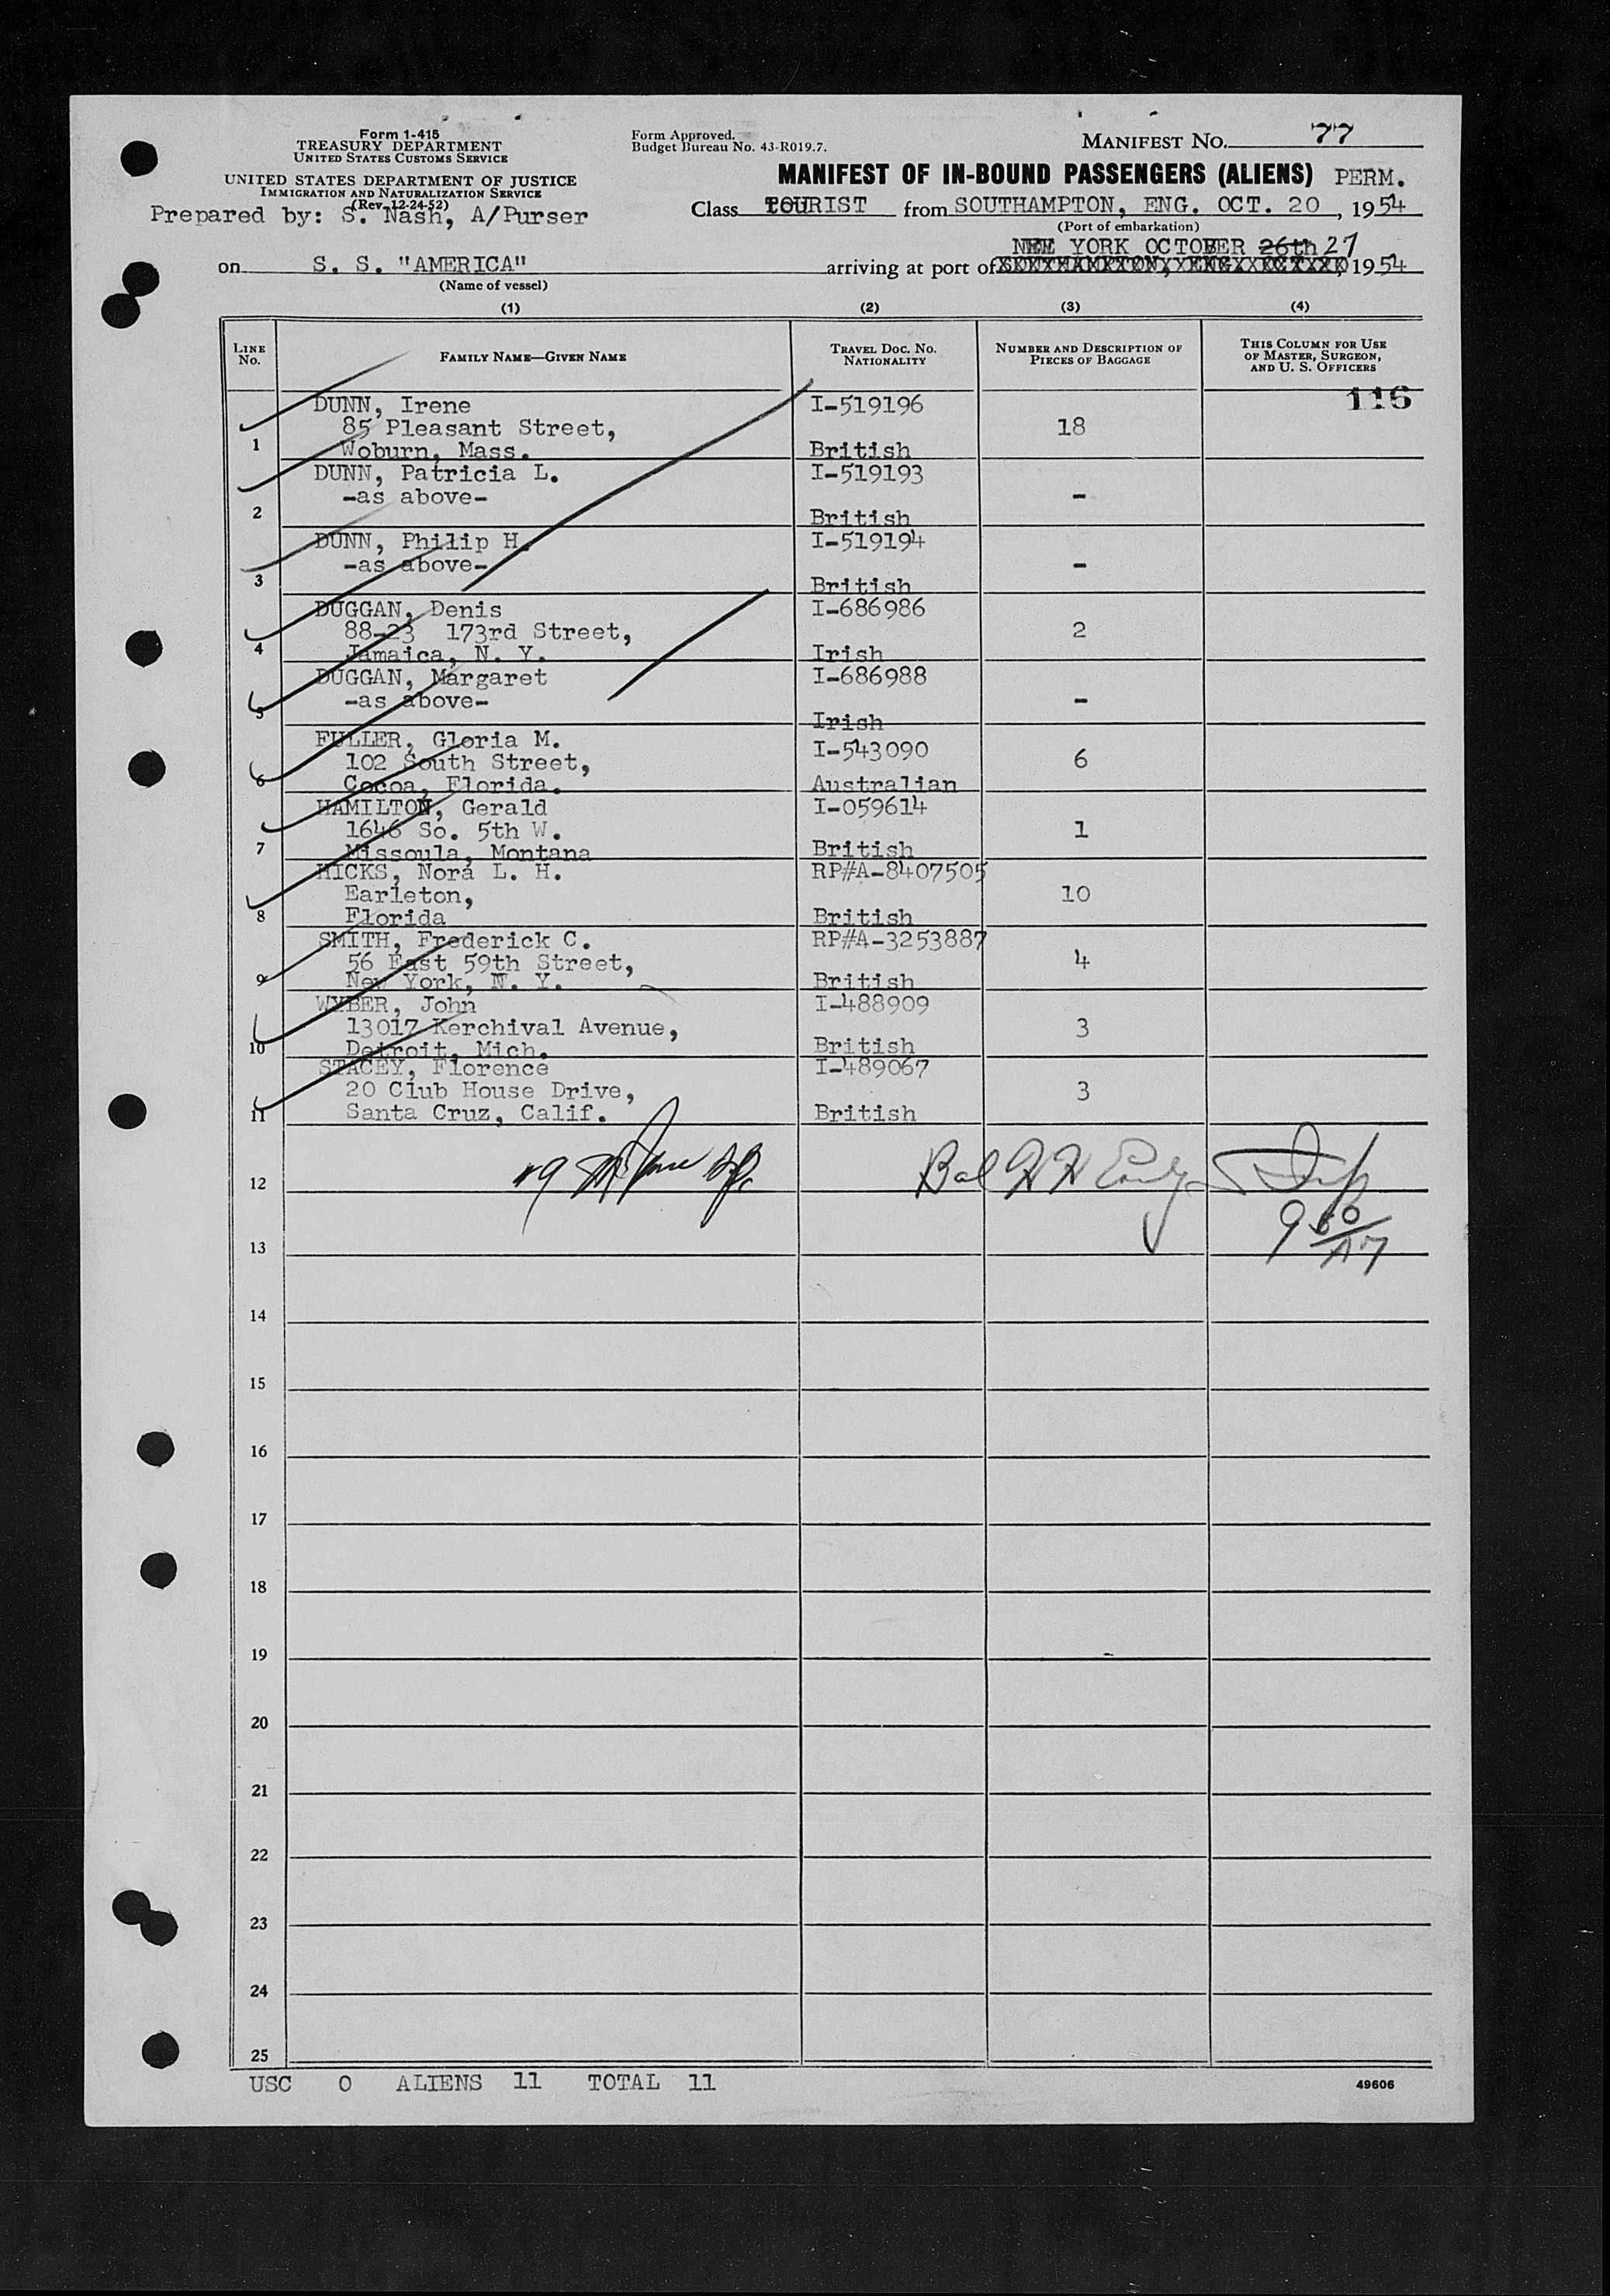 Form 1-415
TREASURY DEPARTMENT
UNITED STATES CUSTOMS SERVICE
UNITED STATES DEPARTMENT OF JUSTICE
IMMIGRATION AND NATURALIZATION SERVICE
(Rev. 12-24-52)
Prepared by: S. Nash, A/Purser
Form Approved.
Budget Bureau No. 43-R019.7.
MANIFEST No. 77
MANIFEST OF IN-BOUND PASSENGERS (ALIENS) PERM.
Class TOURIST from SOUTHAMPTON, ENG. OCT. 20, 1954
(Port of embarkation)
NEW YORK OCTOBER 26th 27
on S. S. "AMERICA" arriving at port of , 1954
(Name of vessel)
(1) (2) (3) (4)
LINE No. FAMILY NAME—GIVEN NAME TRAVEL DOC. NO. NATIONALITY NUMBER AND DESCRIPTION OF PIECES OF BAGGAGE THIS COLUMN FOR USE OF MASTER, SURGEON, AND U. S. OFFICERS
116
DUNN, Irene I-519196
85 Pleasant Street, 18
1 Woburn, Mass. British
DUNN, Patricia L. I-519193
-as above- -
2 British
DUNN, Philip H. I-519194
-as above- -
3 British
DUGGAN, Denis I-686986
88-23 173rd Street, 2
4 Jamaica, N. Y. Irish
DUGGAN, Margaret I-686988
-as above- -
5 Irish
FULLER, Gloria M. I-543090
102 South Street, 6
6 Cocoa, Florida. Australian
HAMILTON, Gerald I-059614
1646 So. 5th W. 1
7 Missoula, Montana British
HICKS, Nora L. H. RP#A-8407505
Earleton, 10
8 Florida British
SMITH, Frederick C. RP#A-3253887
56 East 59th Street, 4
9 New York, N. Y. British
WYBER, John I-488909
13017 Kerchival Avenue, 3
10 Detroit, Mich. British
STACEY, Florence I-489067
20 Club House Drive, 3
11 Santa Cruz, Calif. British
12 Bal
13
14
15
16
17
18
19
20
21
22
23
24
25
USC 0 ALIENS 11 TOTAL 11
49606